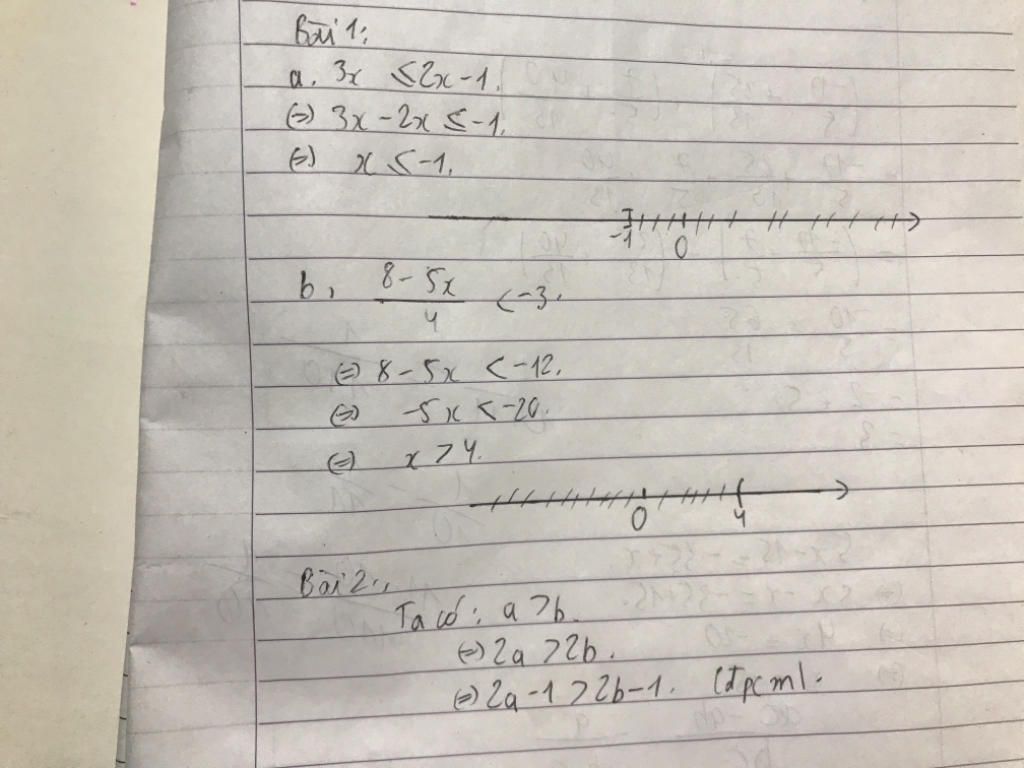 Bài 1:
a. 3x ≤ 2x - 1.
(=) 3x - 2x ≤ -1.
(=) x ≤ -1.
-1 0
b, \frac{8 - 5x}{4} < -3.
(=) 8 - 5x < -12.
(=) -5x < -20.
(=) x > 4.
0 4
Bài 2:
Ta có: a > b.
(=) 2a > 2b.
(=) 2a - 1 > 2b - 1. (đpcm).